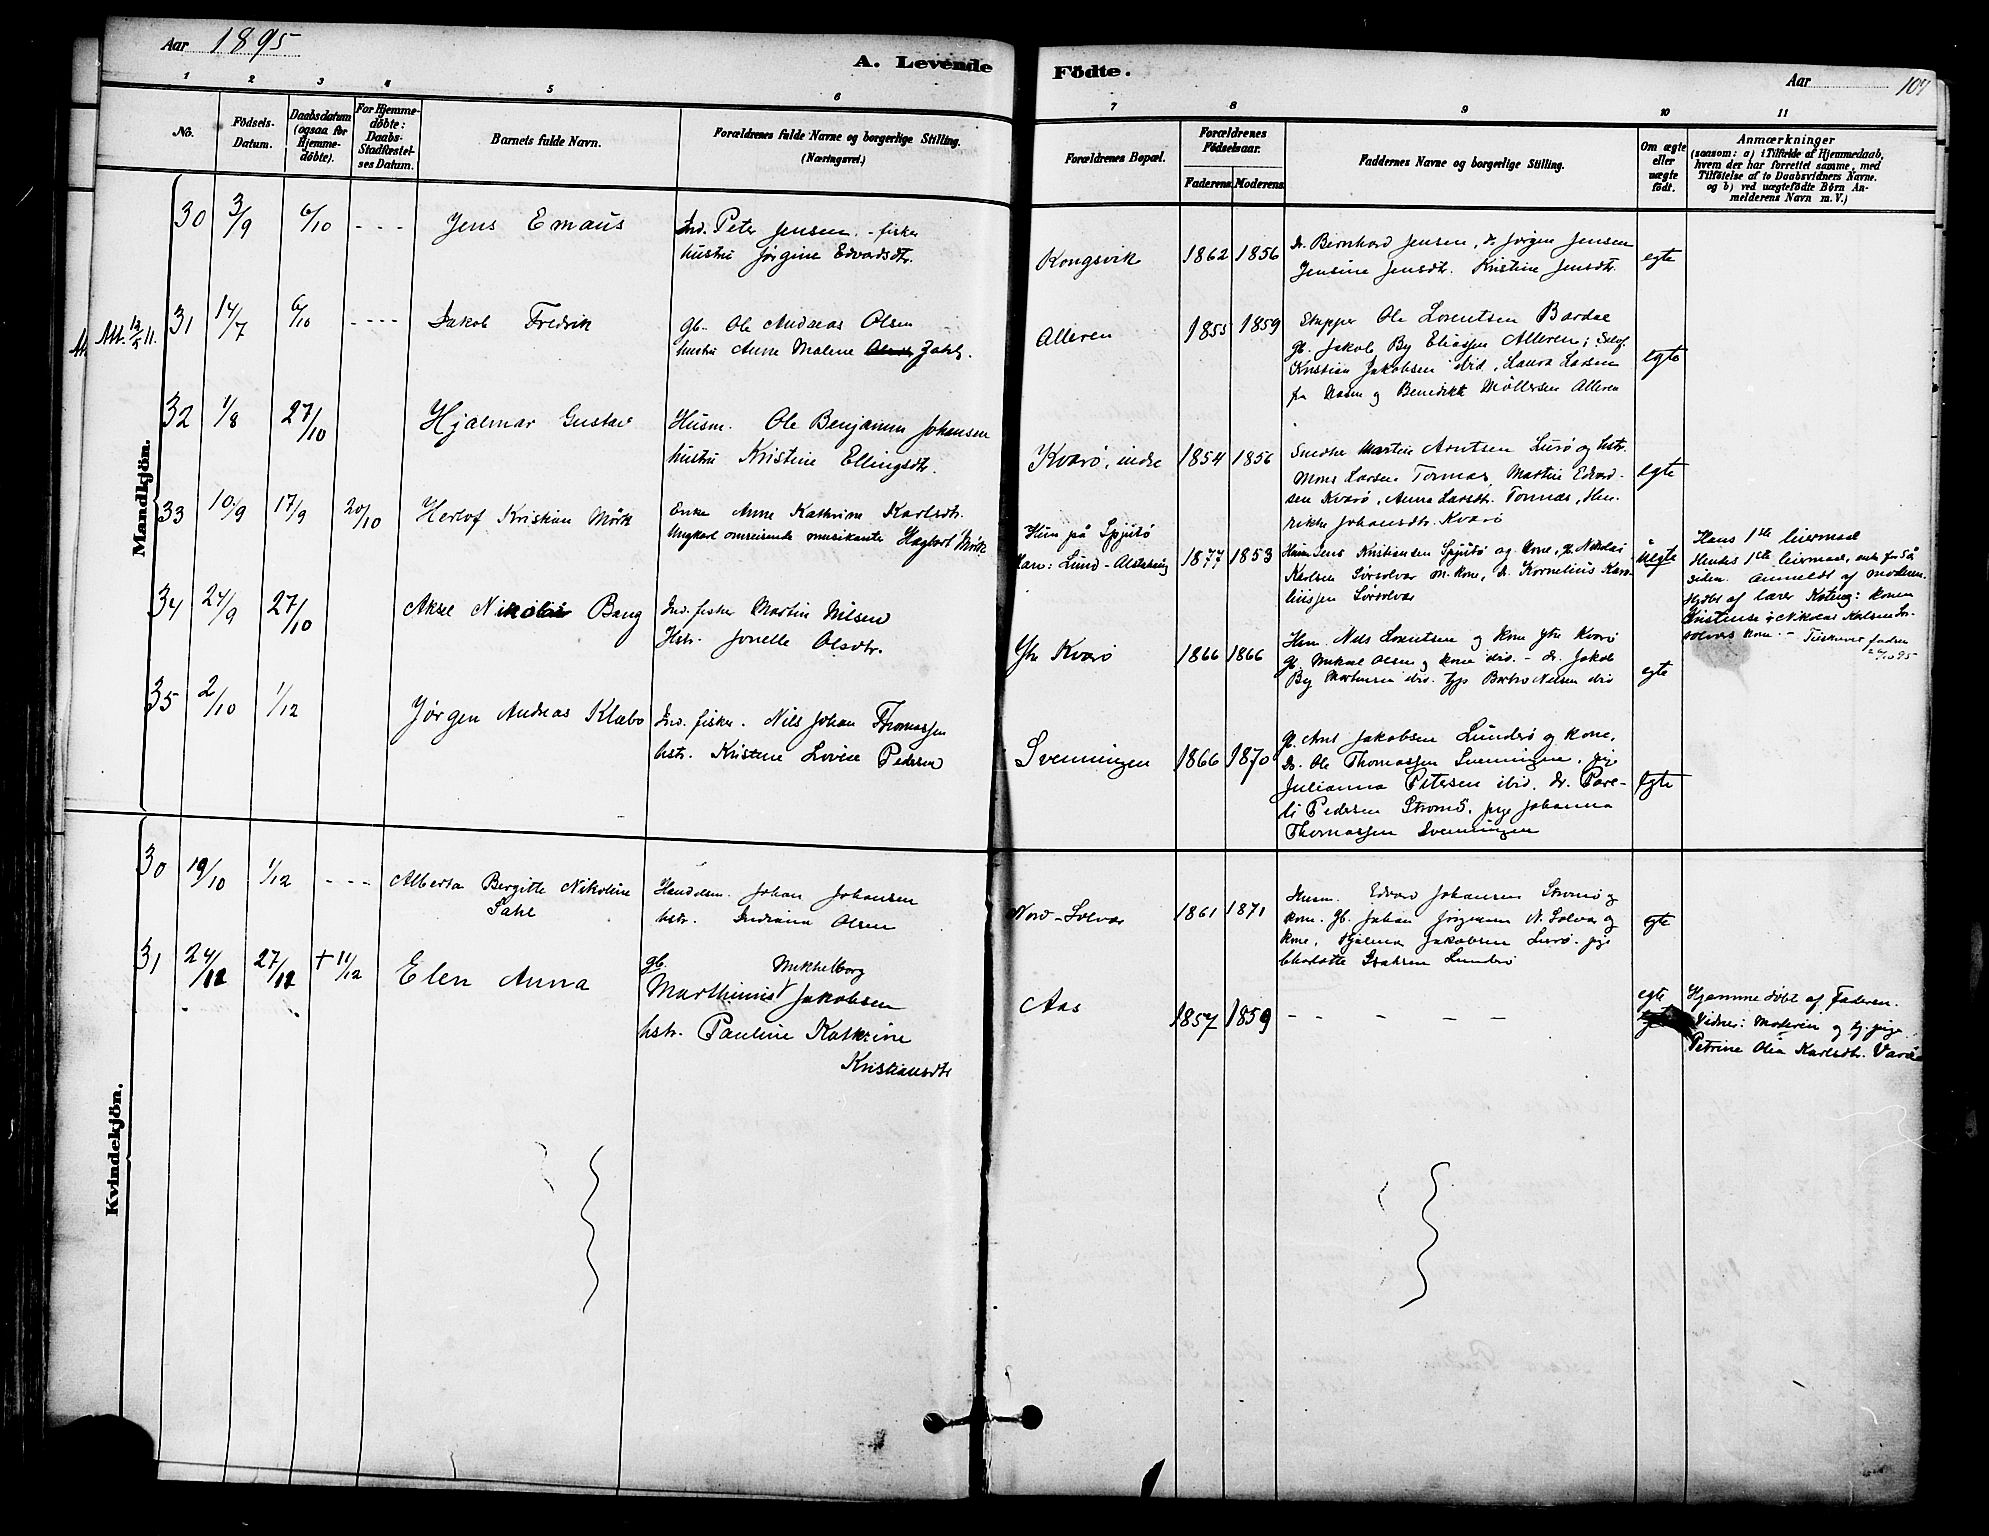 Aar 1895
A. Levende Födte.
Aar 107
1 2 3 4 5 6 7 8 9 10 11
No.
Födsels-
Datum.
Daabsdatum
(ogsaa for
Hjemme-
döbte).
For Hjemme-
döbte:
Daabs-
Stadfæstel-
ses Datum.
Barnets fulde Navn.
Forældrenes fulde Navne og borgerlige Stilling.
(Næringsvei.)
Forældrenes Bopæl.
Forældrenes
Födselsaar.
Faderens. Moderens.
Faddernes Navne og borgerlige Stilling.
Om ægte
eller
uægte
födt.
Anmærkninger
(saasom: a) i Tilfælde af Hjemmedaab,
hvem der har forrettet samme, med
Tilföielse af to Daabsvidners Navne.
og b) ved uægtefödte Börn An-
melderens Navn m. V.)
Mandkjön.
30 3/9 6/10 - - - Jens Emaus
Ind. Peter Jensen - fisker
hustru Jørgine Edvardsdtr.
Kongsvik 1862 1856
Dr. Bernhard Jensen, dr. Jørgen Jensen
Jensine Jensdtr. Kristine Jensdtr.
egte
Att. 12/5 11.
31 14/7 6/10 - - - - Jakob Fredrik
gb. Ole Andreas Olsen
hustru Anne Malene Zahl.
Alleren 1855 1859
Ole Lorentsen Bardal
gb. Jakob By Eliassen Alleren;
Kristian Jakobsen ibid, Laura Larsen
fr og Benedikte Møllersen Alleren
egte
32 1/8 27/10 Hjalmar Gustav
Husm. Ole Benjamin Johansen
hustru Kristine Ellingsdtr.
Kvarø, indre 1854 1856
Martin Arntsen Lurø og hstr.
Mons Larsen Tonnes, Martin Edvard-
sen Kvarø, Anna Larsdtr. Tonnes, Hen-
rikke Johansdtr. Kvarø
egte
33 10/9 17/9 20/10 Herlof Kristian Mørk
Enke Anne Kathrine Karlsdtr.
Ungkarl omreisende musikante Hagbart Mørk
Hun på Spjutø
Han: Lund - Alstahaug 1877 1853
Husm Jens Kristiansen Spjutø og kone, gb. Nikolai
Karlsen Sørsolvær m. kone, dr. Kornelius Karo-
liussen Sørsolvær
uegte
Hans 1ste leiermaal
Hendes 1ste leiermaal, enke for 5 år
siden. Anmeldt af moderen.
Hjdbt af lærer : konen
Nikolai Karlsen Sør-
solvær kone. - faderen
34 24/9 27/10 Aksel Nikolai Bang
Ind. fisker Martin Nilsen
Hstr. Jonelle Olsdtr.
Ytr. Kvarø 1866 1866
Husm. Nils Lorentsen og kone ytre Kvarø
gb. Mikael Olsen og kone ibid. - dr. Jakob
By Martinsen ibid. Nilsen ibid
egte
35 2/10 1/12 Jørgen Andreas Klæbo
Ind. fisker. Nils Johan Thomassen
hstr. Kristine Lovise Pedersen
Svenningen 1866 1870
gb. Arnt Jakobsen Lunderø og kone,
Dr. Ole Thomassen Svenningen, pige
Julianna Petersen ibid, dr. Pare-
li Pedersen Strømø, pige Johanna
Thomassen Svenningen
egte
Kvindekjön.
30 19/10 1/12 - - - Alberta Bergitte Nikoline
Dahl
Johan Johansen
hstr. Indiana Olsen
Nord-Solvær 1861 1871
Husm. Edvard Johansen Strømø og
kone. Gb. Johan Jørgensen N. Solvær og
kone, Hjalmar Jakobsen Lurø. pige
Charlotte Isaksen Lunderø
egte
31 24/12 27/12 + 11/12 Elen Anna
gb. Mikkelborg
Marthinus Jakobsen
hstr. Pauline Kathrine
Kristiansdtr
Aas 1857 1859 - - - - -
egte
Hjemmedøbt af Faderen.
Vidner: Moderen og tj. pige
Petrine Olea Karlsdtr.